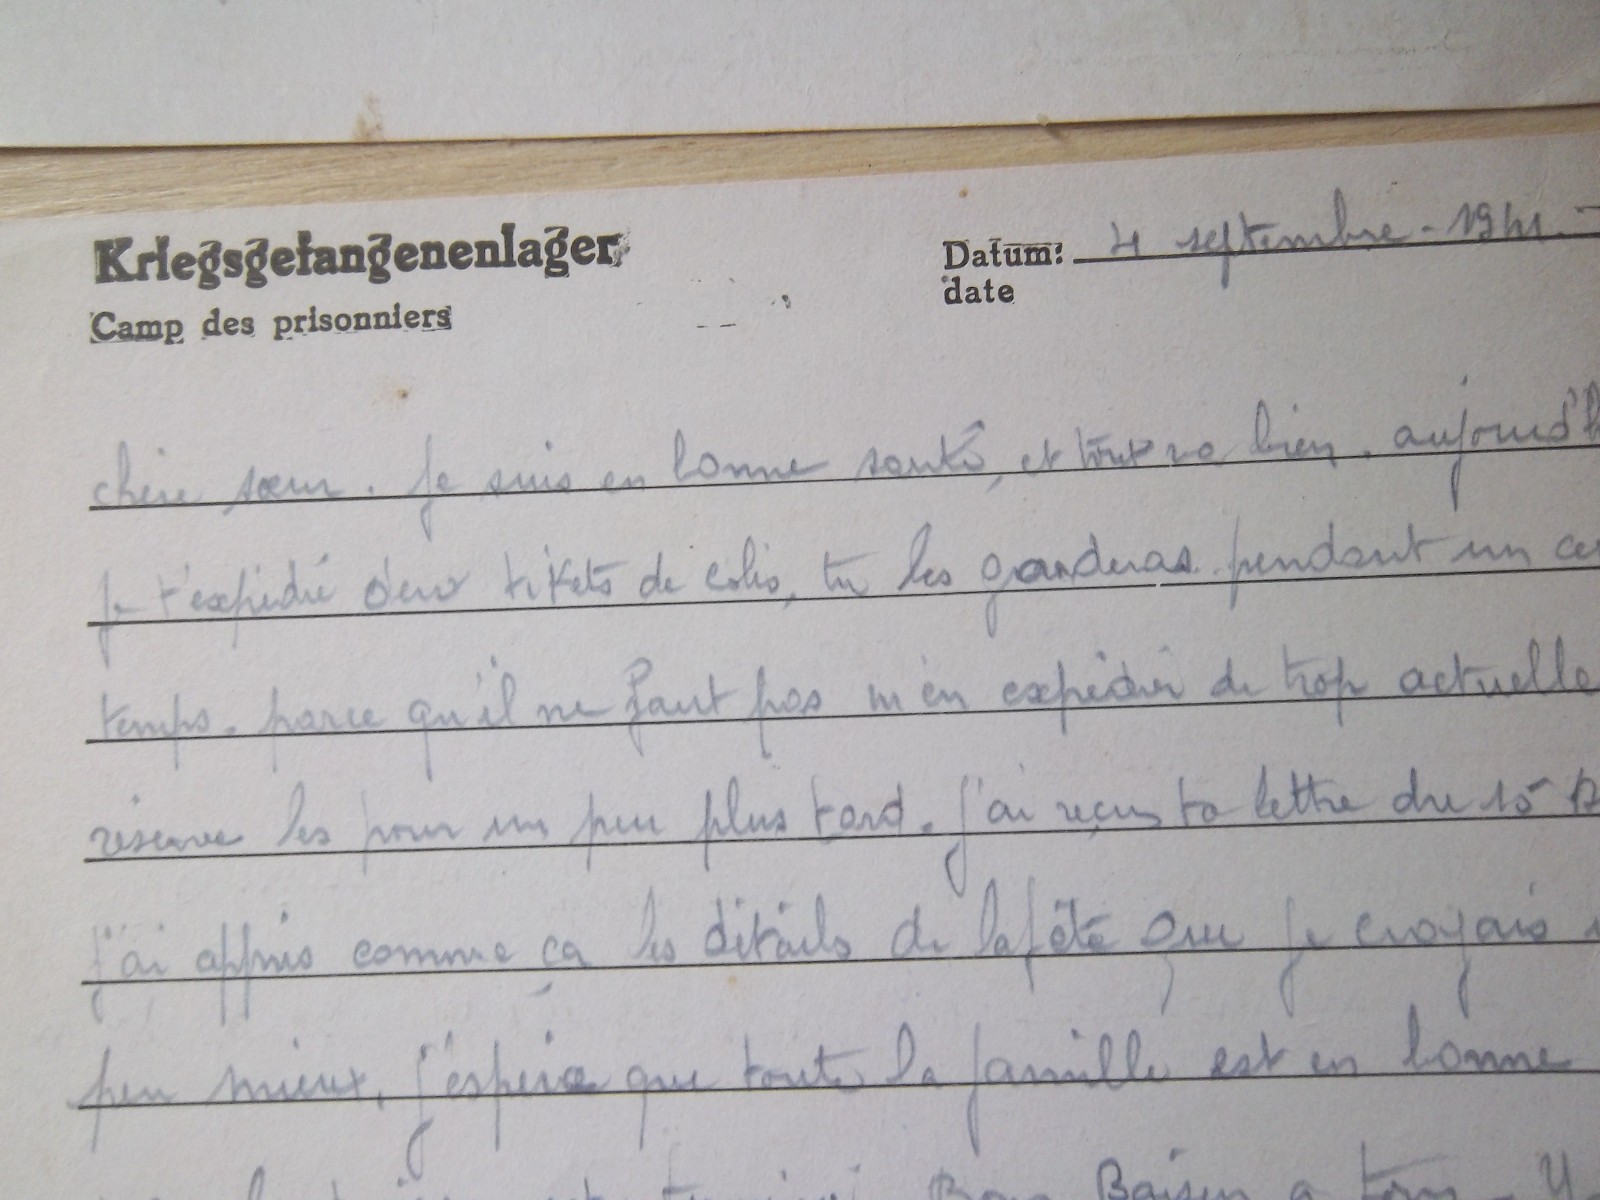 Kriegsgefangenenlager
Camp des prisonniers
Datum: 4 septembre - 1941. -
date
chère sœur. Je suis en bonne santé, et tout va bien. aujourd'h
je t'expédié deux tikets de colis, tu les garderas pendant un ce
temps. parce qu'il ne faut pas m'en expédier de trop actuelle
réserve les pour un peu plus tard. J'ai reçus ta lettre du 15 A
j'ai appris comme ça les détails de la fête que je croyais
peu mieux, j'espère que toute la famille est en bonne
Bons Baisers a tous